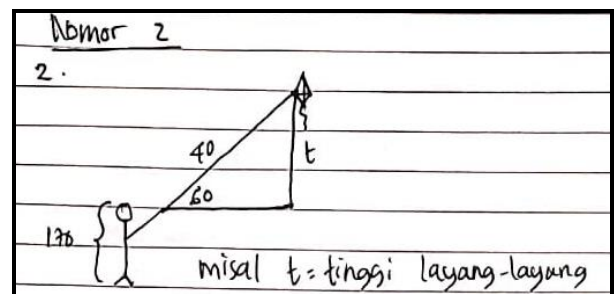 Nomor 2
2.
40
t
60
170
misal t = tinggi layang-layang